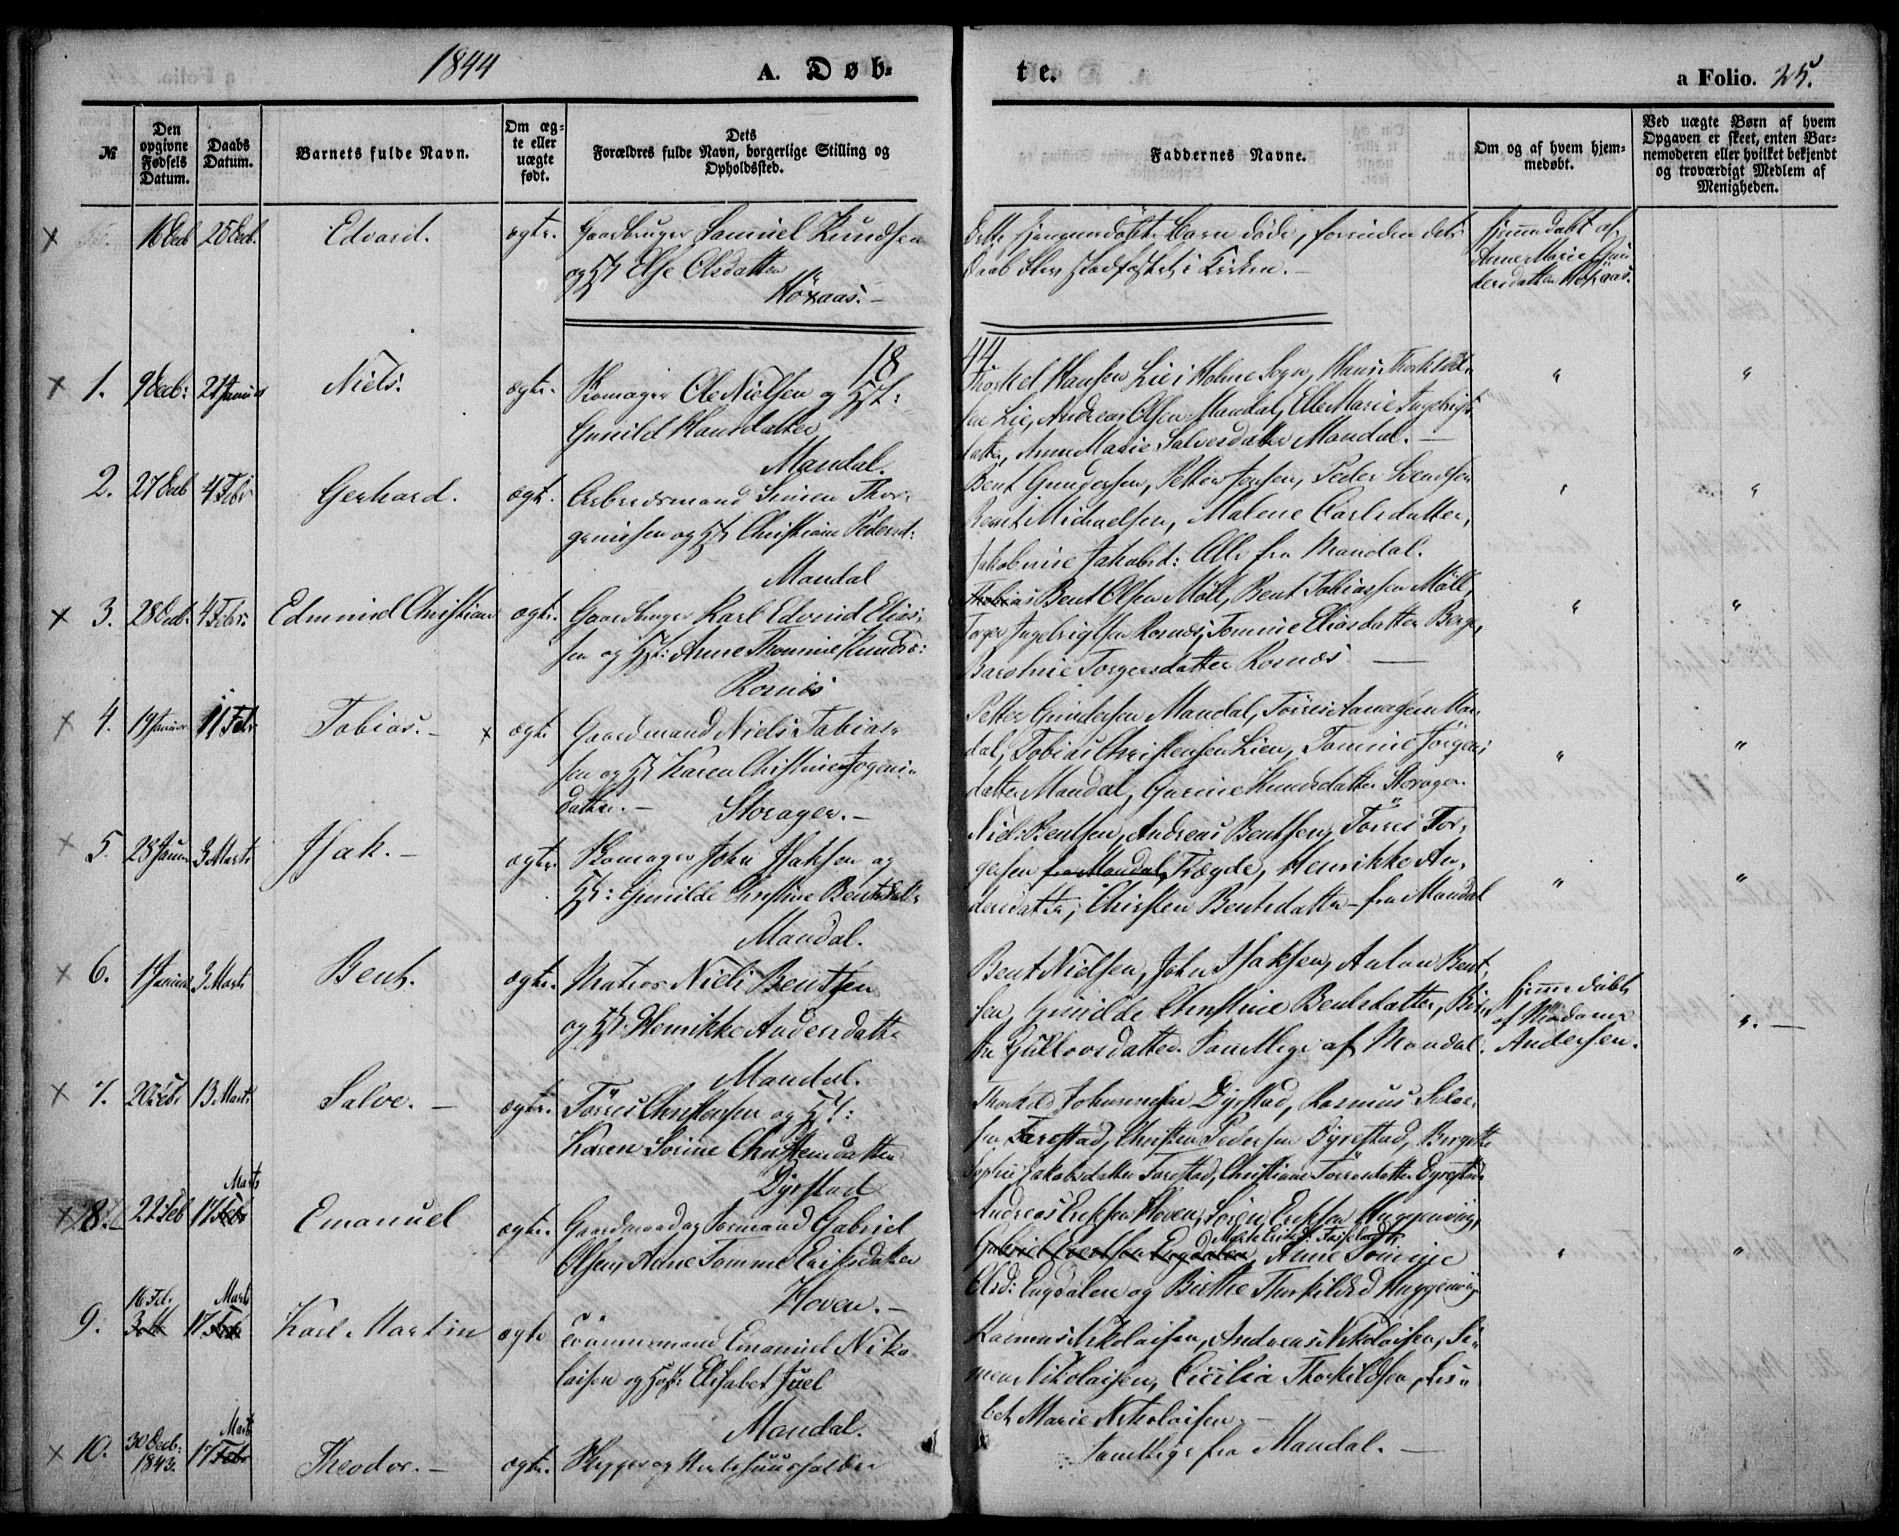 1844
A. Døb-
te.
a Folio. 25.
№
Den opgivne Fødsels Datum.
Daabs Datum.
Barnets fulde Navn.
Om ægte eller uægte født.
Dets
Forældres fulde Navn, borgerlige Stilling og
Opholdssted.
Faddernes Navne.
Om og af hvem hjem-
medøbt.
Ved uægte Børn af hvem
Opgaven er skeet, enten Bar-
nemoderen eller hvilket bekjendt
og troværdigt Medlem af
Menigheden.
16 Decb 25 Decb. Edvard. ægte. Gaardbruger Samuel Knudsen
og H: Else Olsdatter
Høxaas.
Dette hjemmedøbte Barn døde, forinden dets
Daab blev stadfæstet i Kirken.
hjemmedøbt af
Anne Marie
18 44
1. 9 Decb: 21 Januar Niels. ægte. Skomager Ole Nielsen og H:
Gunild Hansdatter
Mandal.
Torkel Hansen Lie i Holme Sogn, Hans Thorkild-
sen Lie, Andreas Olsen Mandal, Elle Marie Ingebrigts-
datter, Anne Marie Salvesdatter Mandal.
2. 27 Decb 4 Febr Gerhard. ægte. Arbeidsmand Simen Thor-
og H: Christiane Pedersd:
Mandal
Bent Gundersen, Petter Jensen, Peder
Berent Michaelsen, Malene Carlsdatter,
Jakobine Jakobsd: Alle fra Mandal.
3. 28 Decb. 4 Febr: Edmund Christian ægte. Gaardbruger Karl Edvind Elias-
sen og H: Anne Thomine Knudsd:
Rosnæs
Tobias Bent Olsen Møll, Bent Tobiassen Møll,
Torger Ingebrigtsen Rosnæs, Tomine Eliasdatter Berge,
Barolnie Torgersdatter Rosnæs
4. 19 Januar 11 Febr Tobias. ægte Gaardmand Niels Tobias-
sen og H: Karen Christine Jørgens-
datter. Storager.
Petter Gundersen Mandal, Tørres Aanagsen Man-
dal, Tobias Christensen Lien, Tomine Jørgens-
datter Mandal, Gurine Knudsdatter Storager
5. 28 Januar 3 Marts Isak. ægte. Skomager John Isaksen og
H: Gunilde Christine Bentsdatt:
Mandal.
Niels Bentsen, Andreas Bentsen, Tørres Tor-
gersen fra Mandal, Tregde, Henrikke An-
dersdatter, Christen Bentsdatter fra Mandal
6. 1 Januar 3 Marts Bent. ægte. Matros Niels Bentsen
og H: Henrikke Andersdatter
Mandal.
Bent Nielsen, John Isaksen, Anton Bent-
sen, Gunilde Christine Bentsdatter, Bir-
the Gullovsdatter. Samtlige af Mandal.
hjemmedøbt
af Madame
Andersen.
7. 13 Marts Salve. ægte. Tørres Christensen og H:
Karen Sørine Christensdatter
Dyrstad
Johannesen Dyrstad, Rasmus Salve-
sen Farestad, Christen Pedersen Dyrestad, Bergitte
Sophie Jakobsdatter Farestad, Christiane Tørresdatter Dyrestad
8. 22 Feb 17 Febr Marts Emanuel ægte. Gaardmand og Formand Gabriel
Olsen, Anne Tomine Eriksdatter
Hoven.
Andreas Eriksen Hoven, Søren Eriksen Huggenvig,
Gabriel Evertsen Engdalen, Anne Tomine
Olsd: Engdalen og Birthe Thorkildsd Huggenvig
9. 16 Feb. 17 Febr Marts Karl Martin ægte Tømmermand Emanuel Niko-
laisen og H: Elisabet Juel
Mandal.
Rasmus Nikolaisen, Andreas Nikolaisen, Si-
men Nikolaisen, Cicilia Thorkildsen, Lis-
bet Marie Nikolaisen.
Samtlige fra Mandal.
10. 30 Decb: 1843. 17 Febr Marts Theodor. ægte. Skipper og Vertshuusholder